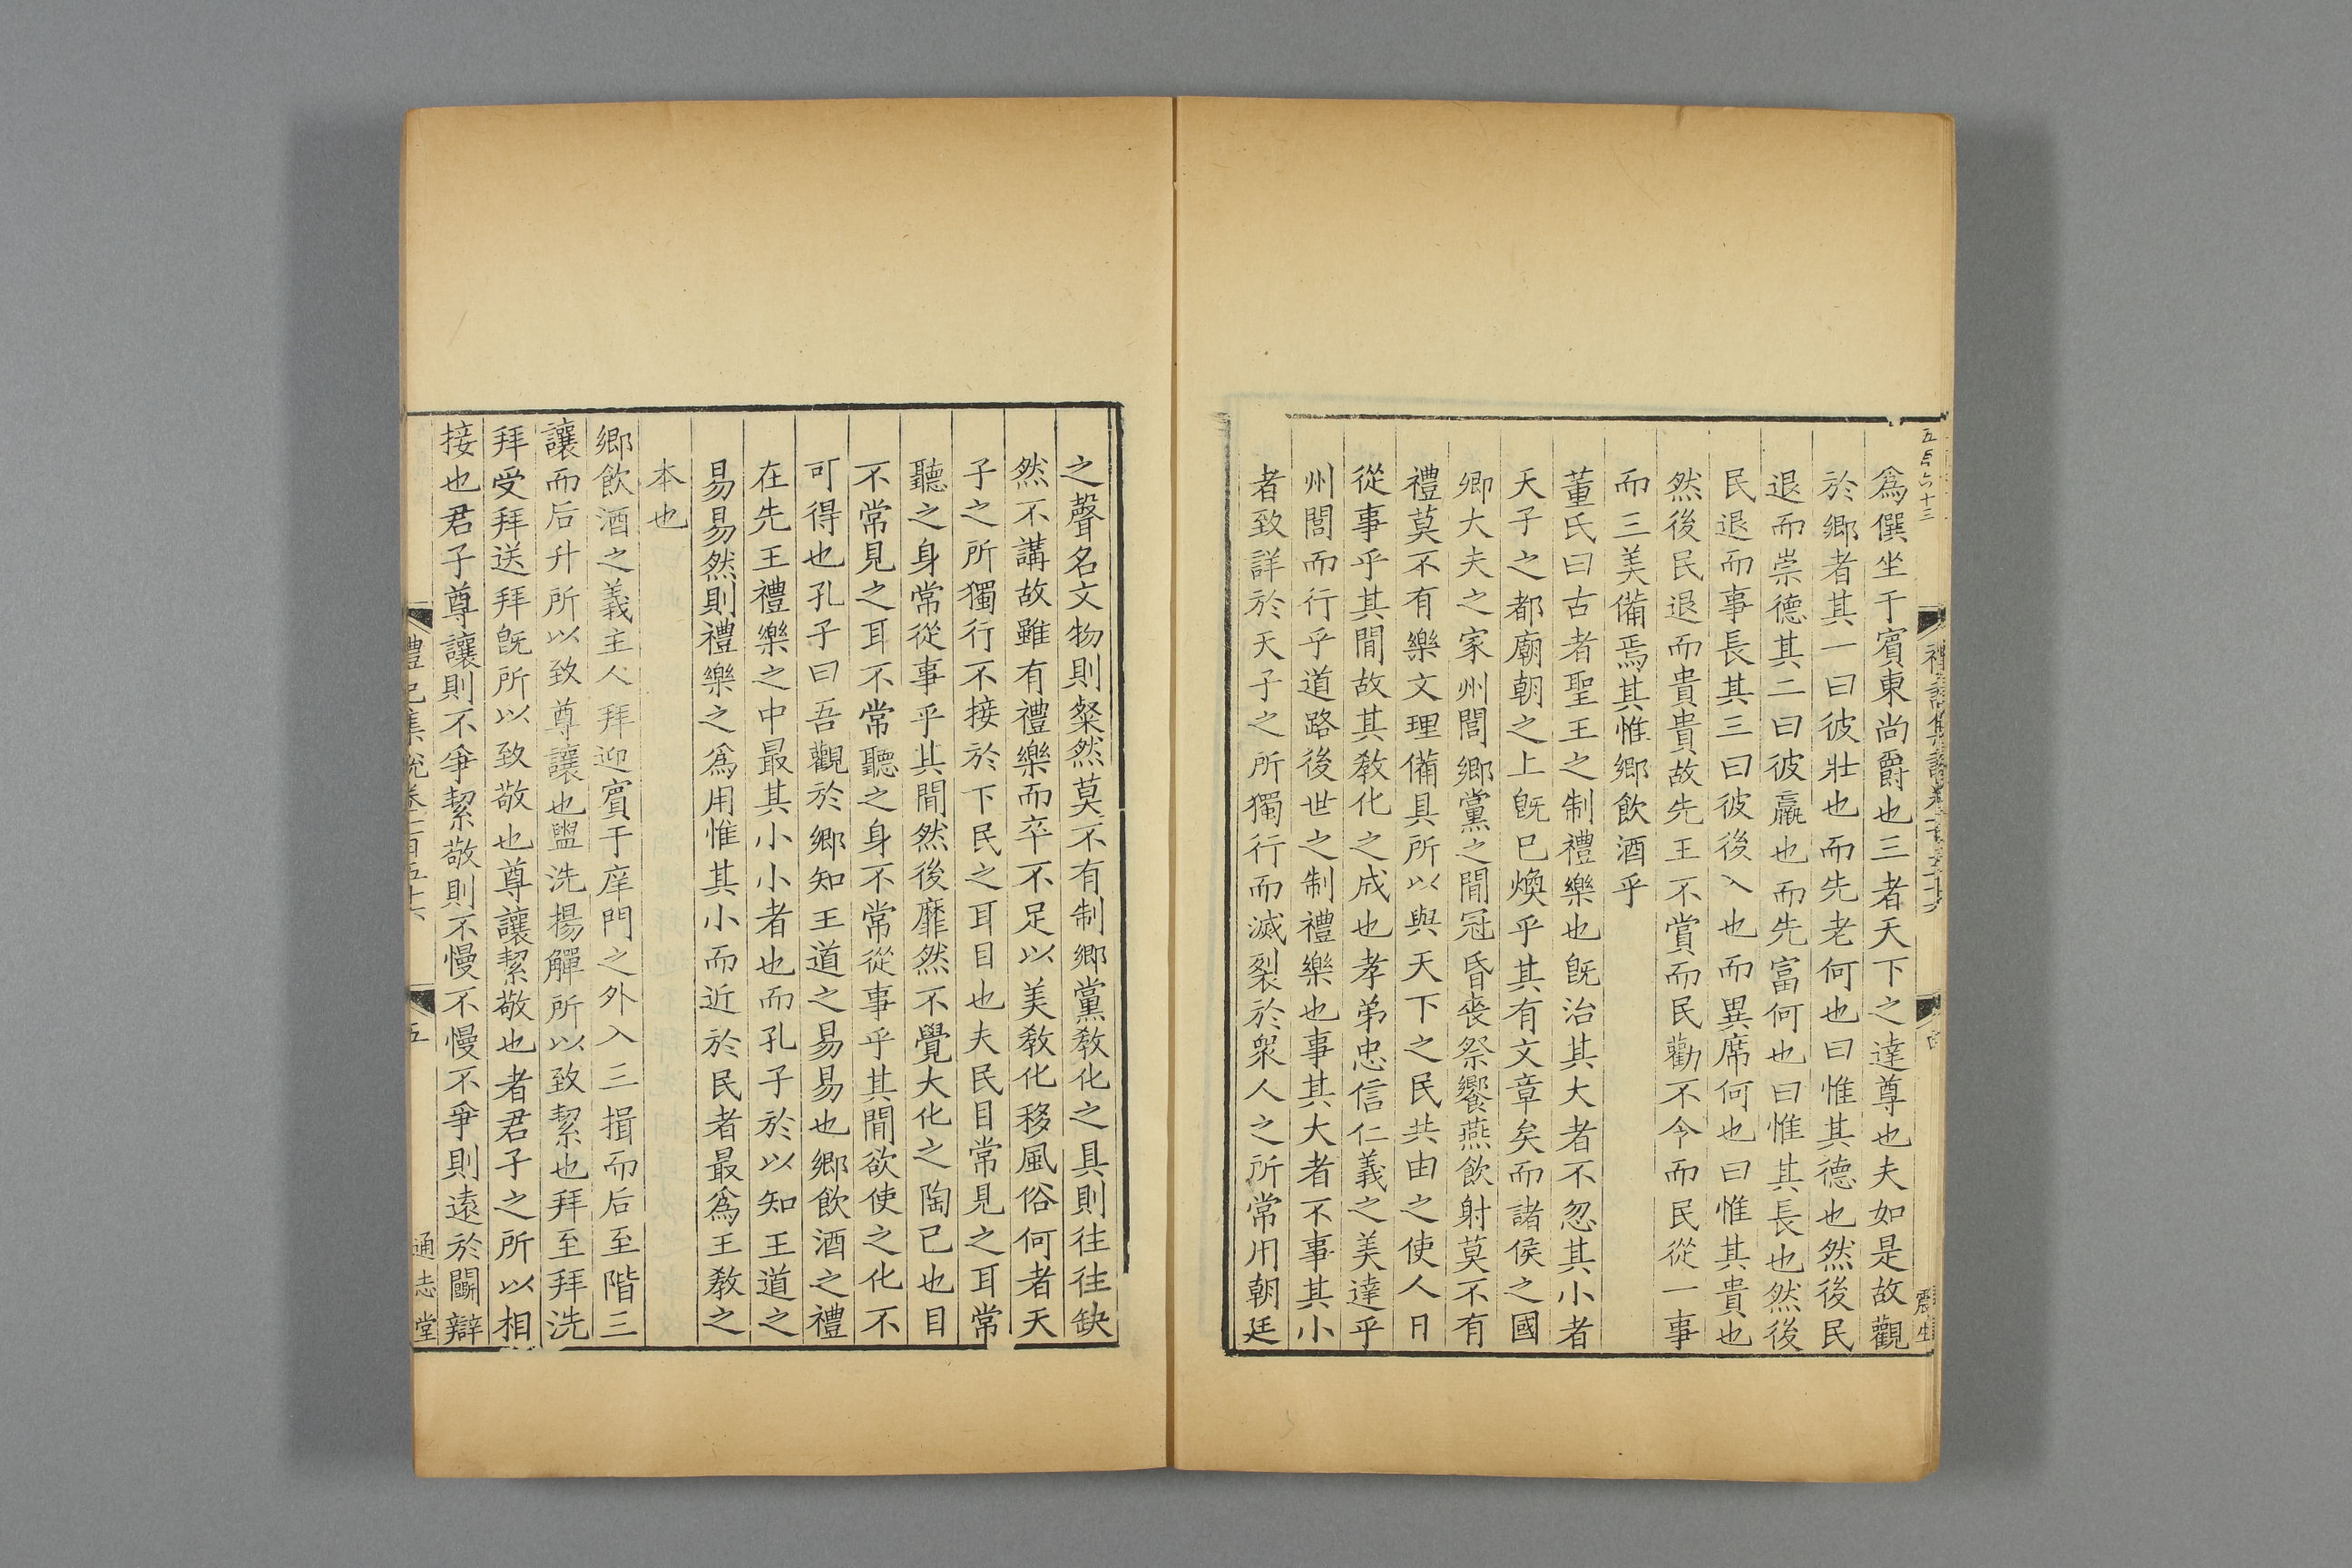 五百六十三
爲僎坐于賓東尚爵也三者天下之達尊也夫如是故觀
於鄉者其一曰彼壯也而先老何也曰惟其德也然後民
退而崇德其二曰彼羸也而先富何也曰惟其長也然後
民退而事長其三曰彼後入也而異席何也曰惟其貴也
然後民退而貴貴故先王不賞而民勸不令而民從一事
而三美備焉其惟鄉飲酒乎
董氏曰古者聖王之制禮樂也旣治其大者不忽其小者
天子之都廟朝之上旣已煥乎其有文章矣而諸侯之國
卿大夫之家州閭鄉黨之閒冠昏喪祭饗燕飲射莫不有
禮莫不有樂文理備具所以與天下之民共由之使人日
從事乎其閒故其敎化之成也孝弟忠信仁義之美達乎
州閭而行乎道路後世之制禮樂也事其大者不事其小
者致詳於天子之所獨行而滅裂於衆人之所常用朝廷
之聲名文物則粲然莫不有制鄉黨敎化之具則往往缺
然不講故雖有禮樂而卒不足以美敎化移風俗何者天
子之所獨行不接於下民之耳目也夫民目常見之耳常
聽之身常從事乎其閒然後靡然不覺大化之陶己也目
不常見之耳不常聽之身不常從事乎其閒欲使之化不
可得也孔子曰吾觀於鄉知王道之易易也鄉飲酒之禮
在先王禮樂之中最其小小者也而孔子於以知王道之
易易然則禮樂之爲用惟其小而近於民者最爲王敎之
本也
鄉飲酒之義主人拜迎賓于庠門之外入三揖而后至階三
讓而后升所以致尊讓也盥洗揚觶所以致絜也拜至拜洗
拜受拜送拜旣所以致敬也尊讓絜敬也者君子之所以相
接也君子尊讓則不爭絜敬則不慢不慢不爭則遠於鬭辯
禮記集說卷一百五十六
五
通志堂